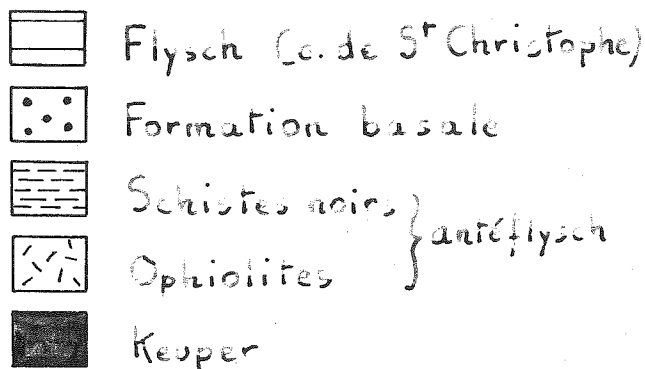 Flysch (c. de St Christophe)
Formation basale
Schistes noirs
antéflysch
Ophiolites
Keuper